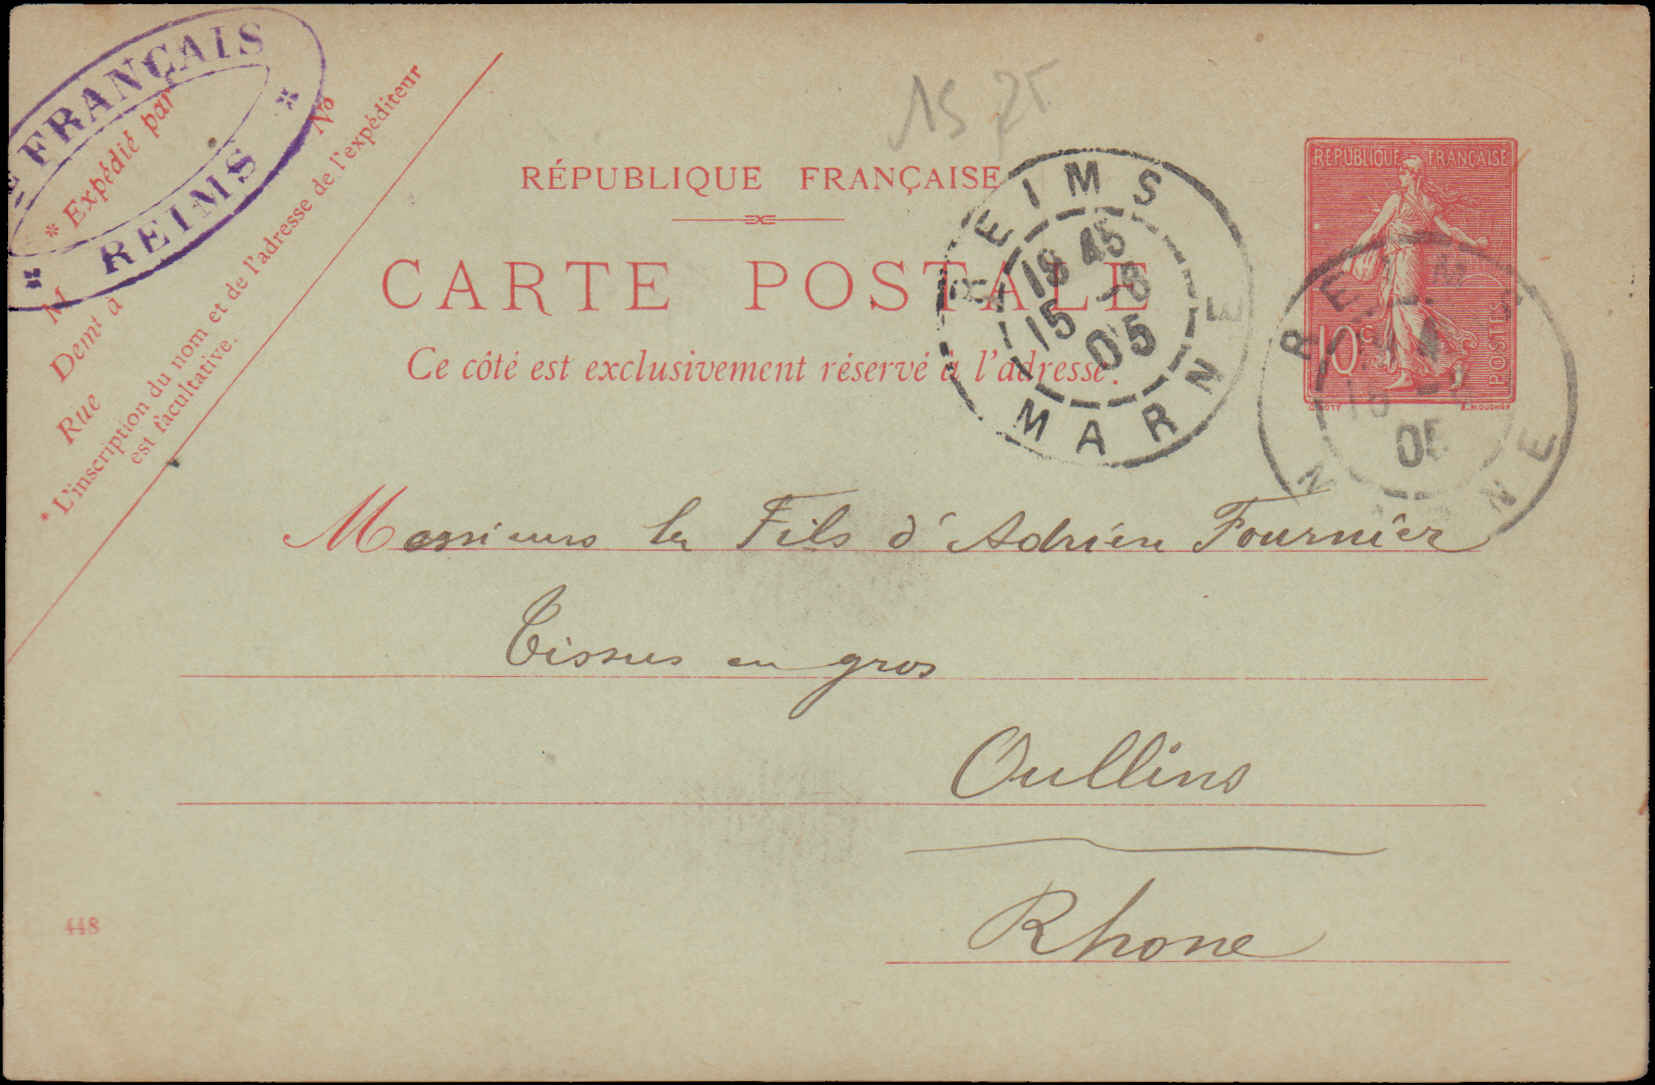 FRANÇAIS
REIMS
* Expédié par
M
Demt à
Rue
No
* L'inscription du nom et de l'adresse de l'expéditeur
est facultative.
15
RÉPUBLIQUE FRANÇAISE
CARTE POSTALE
Ce côté est exclusivement réservé à l'adresse.
REIMS
18 45
15 -8
05
MARNE
RÉPUBLIQUE FRANÇAISE
10c
POSTES
REIMS
05
Messieurs les Fils d'Adrien Fournier
Tissus en gros
Oullins
Rhone
448